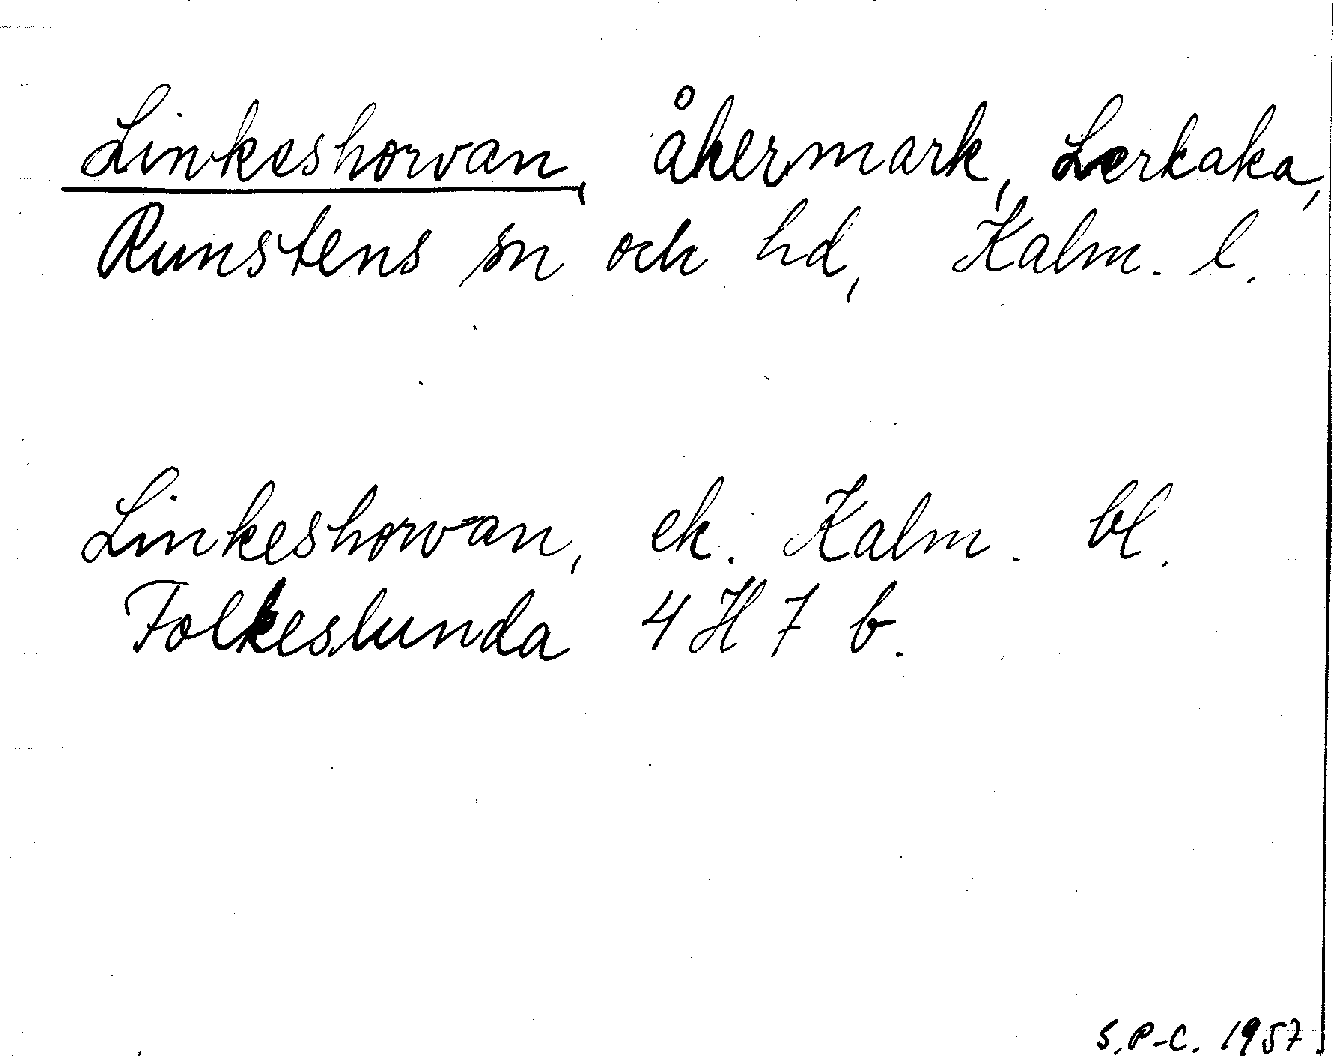 Linkeshorvan, åkermark, Lerkaka,
Runstens sn och hd, Kalm. l.
Linkeshorvan, ek. Kalm. bl.
Folkeslunda 4 H 7 b.
S.P-C. 1957.